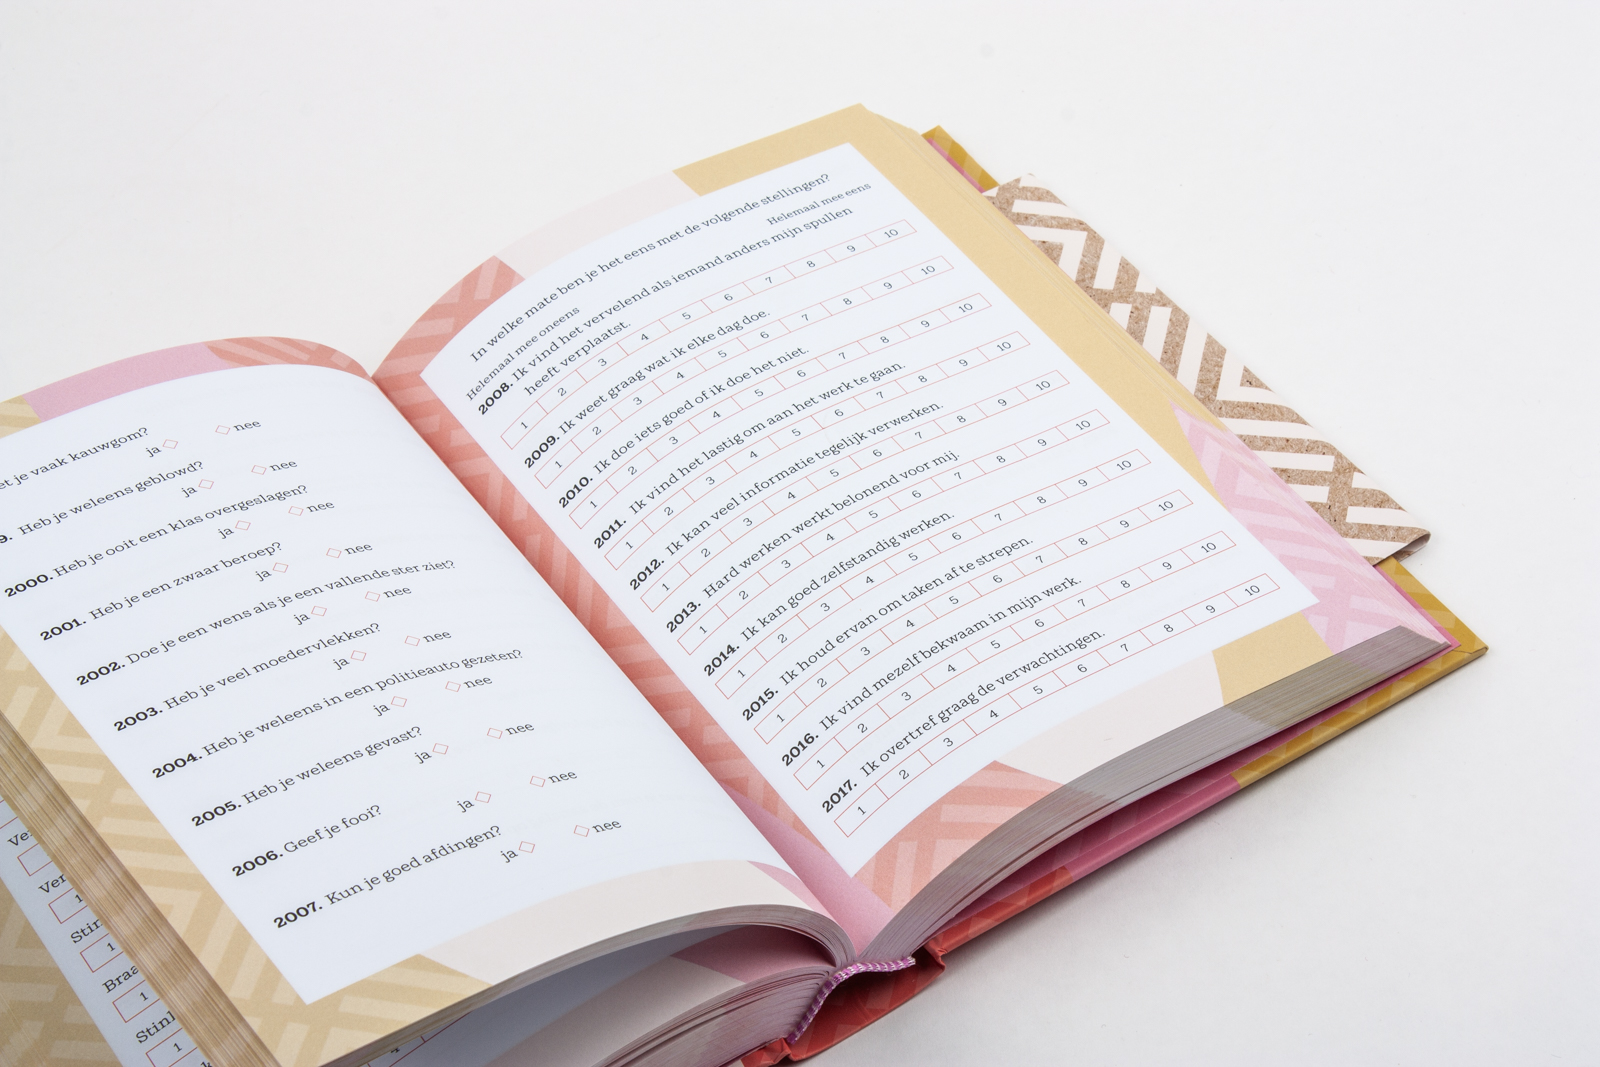 je vaak kauwgom?
ja nee
9. Heb je weleens geblowd?
ja nee
2000. Heb je ooit een klas overgeslagen?
ja nee
2001. Heb je een zwaar beroep?
ja nee
2002. Doe je een wens als je een vallende ster ziet?
ja nee
2003. Heb je veel moedervlekken?
ja nee
2004. Heb je weleens in een politieauto gezeten?
ja nee
2005. Heb je weleens gevast?
ja nee
2006. Geef je fooi?
ja nee
2007. Kun je goed afdingen?
ja nee
In welke mate ben je het eens met de volgende stellingen?
Helemaal mee oneens Helemaal mee eens
2008. Ik vind het vervelend als iemand anders mijn spullen
heeft verplaatst.
1 2 3 4 5 6 7 8 9 10
2009. Ik weet graag wat ik elke dag doe.
1 2 3 4 5 6 7 8 9 10
2010. Ik doe iets goed of ik doe het niet.
1 2 3 4 5 6 7 8 9 10
2011. Ik vind het lastig om aan het werk te gaan.
1 2 3 4 5 6 7 8 9 10
2012. Ik kan veel informatie tegelijk verwerken.
1 2 3 4 5 6 7 8 9 10
2013. Hard werken werkt belonend voor mij.
1 2 3 4 5 6 7 8 9 10
2014. Ik kan goed zelfstandig werken.
1 2 3 4 5 6 7 8 9 10
2015. Ik houd ervan om taken af te strepen.
1 2 3 4 5 6 7 8 9 10
2016. Ik vind mezelf bekwaam in mijn werk.
1 2 3 4 5 6 7 8 9 10
2017. Ik overtref graag de verwachtingen.
1 2 3 4 5 6 7 8 9 10
1
1
1
1